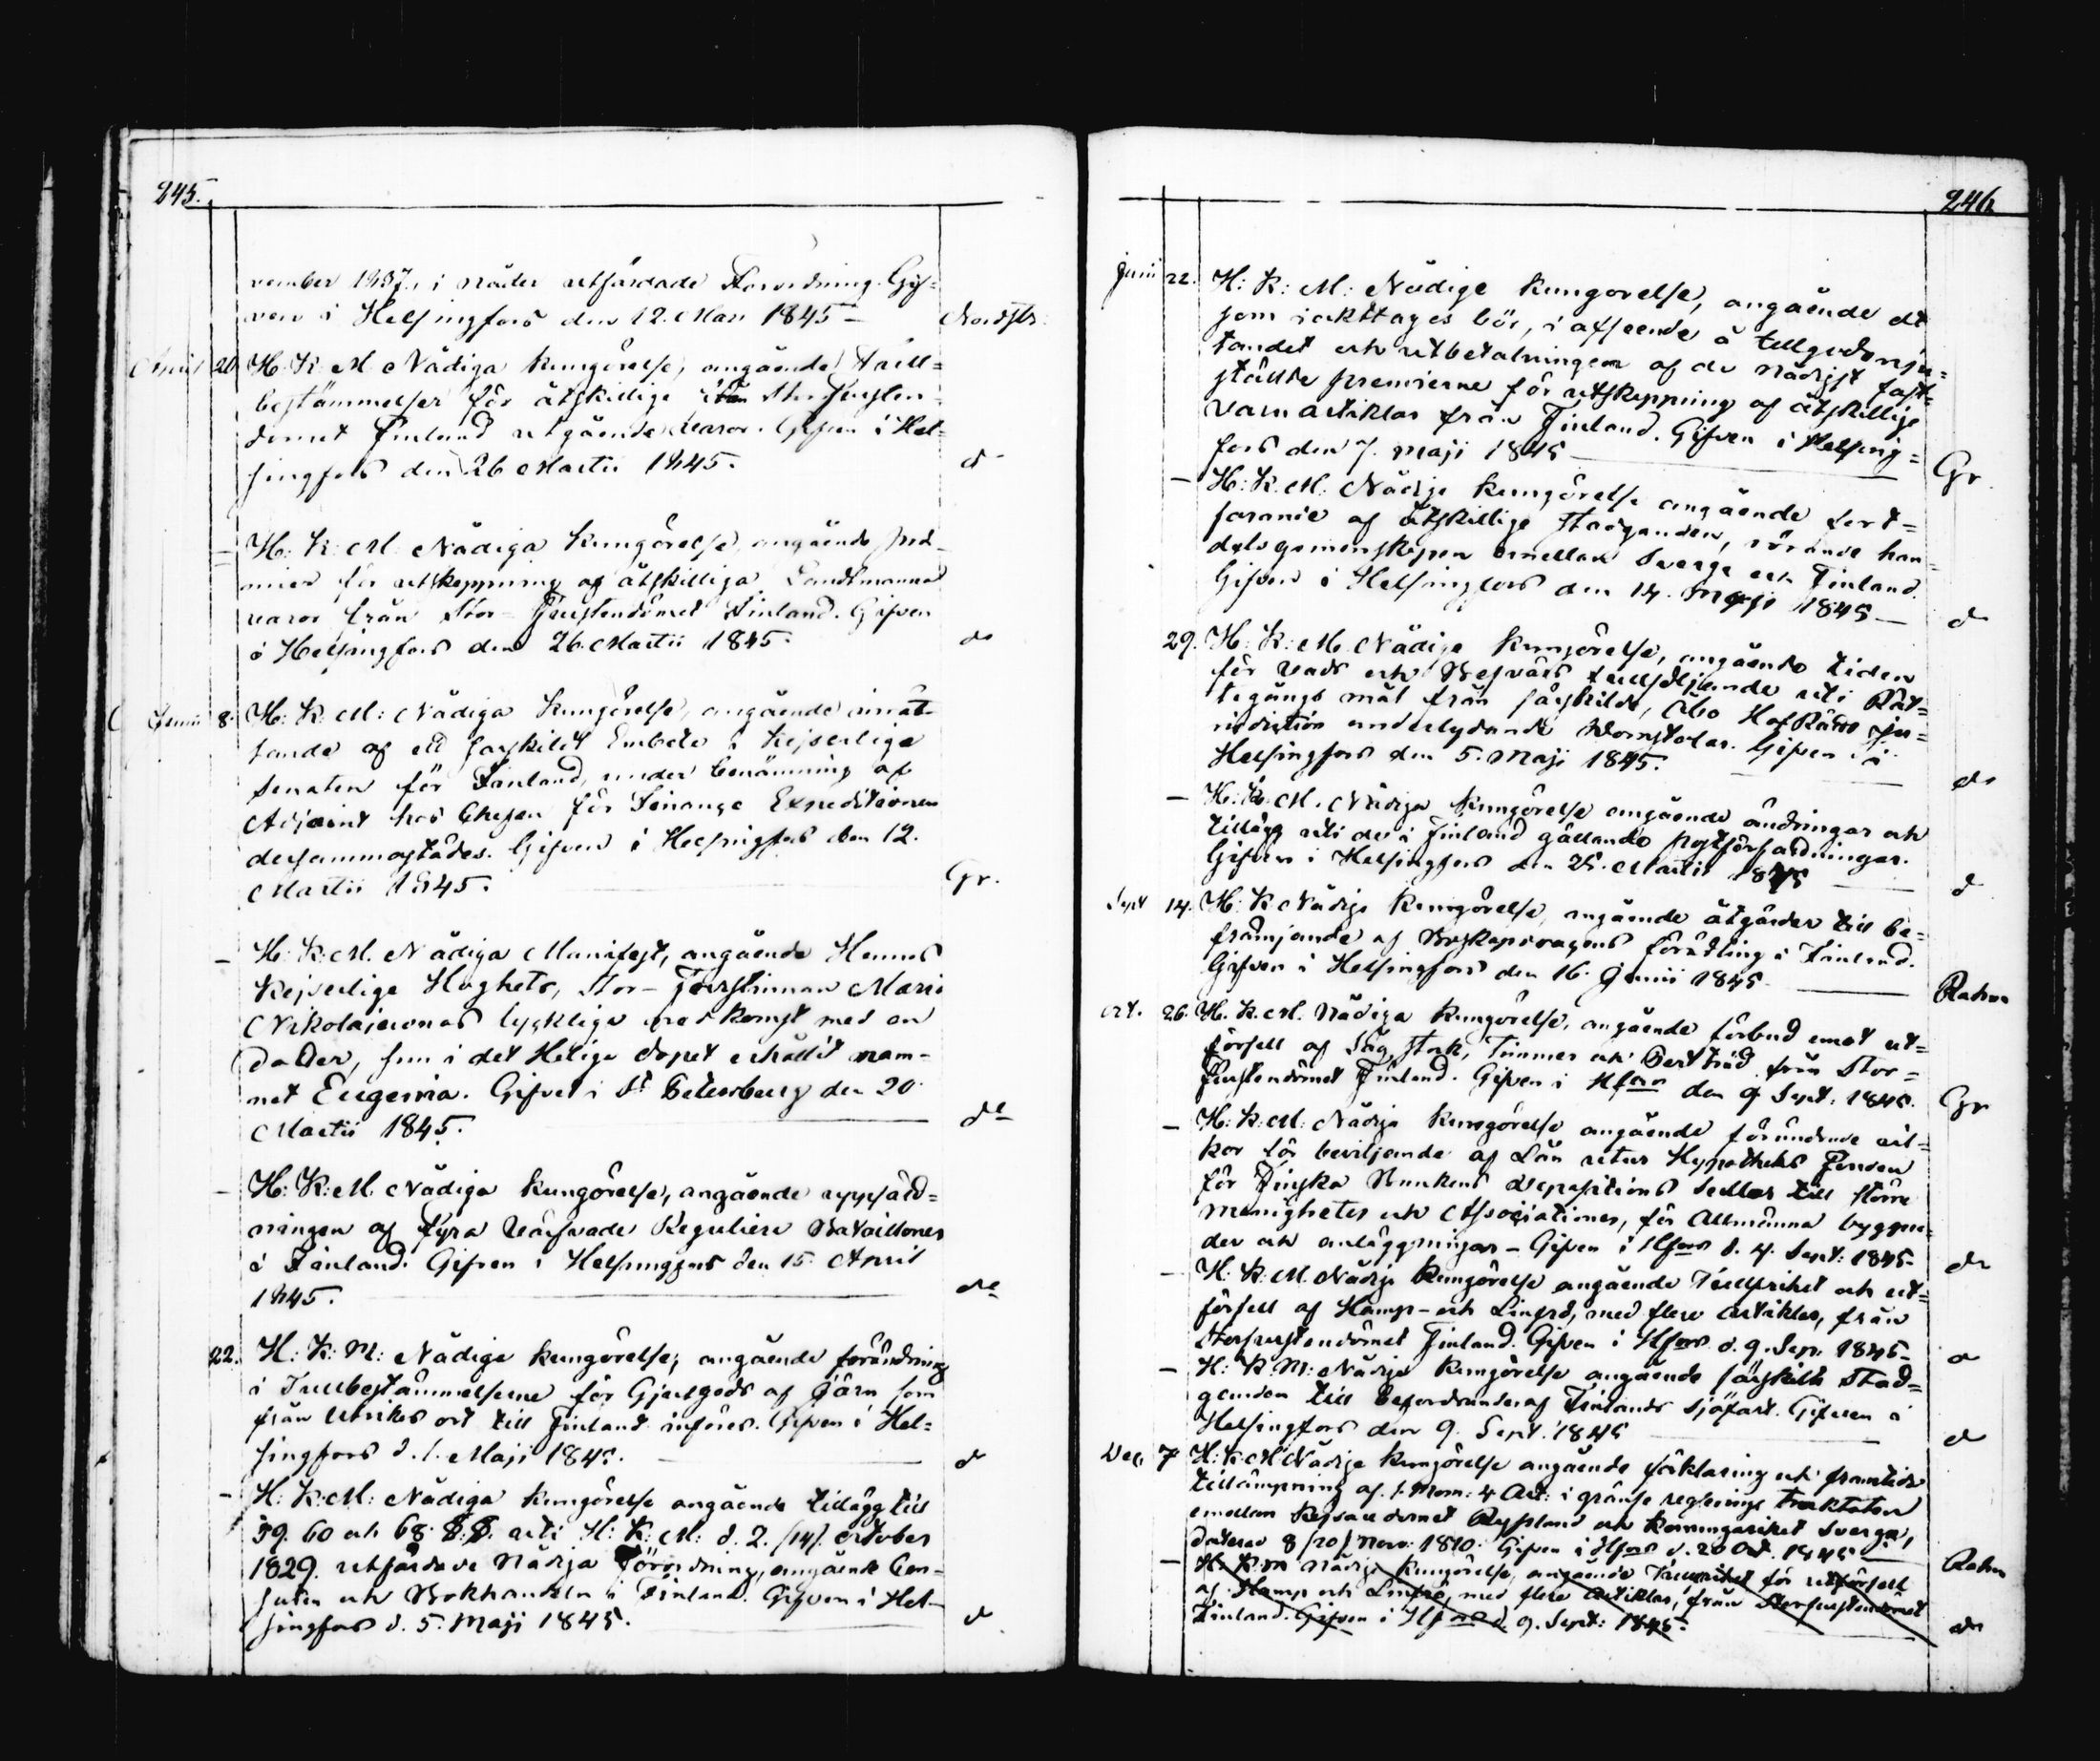 245.
vember 1837, i nåder utfärdade Förordning. Gif-
ven i Helsingfors den 12. Mars 1845 —
April 20 H. K. M. Nådiga Kungörelse, angående Tull-
bestämmelser för åtskillige från Storfursten-
dömet Finland utgående varor. Gifven i Hel-
singfors den 26 Martii 1845. d
— H: K: M: Nådiga Kungörelse, angående pre-
mier för utskeppning af åtskilliga Landtmanna
varor från Stor-Furstendömet Finland. Gifven
i Helsingfors den 26. Martii 1845. do
Junii 8. H: K: M: Nådiga Kungörelse, angående inrät-
tande af ett särskildt Embete i Kejserliga
Senaten för Finland, under benämning af
Adjoint hos Chefen för Finance Expeditionen
dersammastädes. Gifven i Helsingfors den 12.
Martii 1845. Gr.
— H: K: M. Nådiga Manifest, angående Hennes
Kejserliga Höghets, Stor-Furstinnan Maria
Nikolajewnas lyckliga nedkomst med en
Dotter, som i det Heliga dopet erhållit nam-
net Eugenia. Gifvet i St Petersburg den 20
Martii 1845. do
— H: K: M. Nådiga Kungörelse, angående uppsätt-
ningen af fyra Värfvade Reguliere Batailloner
i Finland. Gifven i Helsingfors den 15 April
1845. do
22. H: K: M: Nådiga Kungörelse, angående förändring
i Tullbestämmelserne för Gjutgods af Järn som
från Utrikes ort till Finland införes. Gifven i Hel-
singfors d. 1. Maji 1845. d
— H: K: M: Nådiga Kungörelse angående tillägg till
59. 60 och 68. §. §. uti H: K: M: d. 2. /14/. October
1829. utfärdade Nådiga Förordning, angående Cen-
suren och Bokhandeln i Finland. Gifven i Hel-
singfors d. 5. Maji 1845. d
246
Junii 22. H: K: M: Nådige Kungörelse, angående det
som iakttages bör, i afseende å tillgodonju-
tandet och utbetalningen af de nådigst fast-
ställda premierne för utskeppning af åtskillige
varuartiklar från Finland. Gifven i Helsing-
fors den 7. Maji 1845 — Gr.
— H: K: M: Nådiga Kungörelse angående fort-
farande af åtskillige stadganden, rörande han-
delsgemenskapen emellan Sverge och Finland.
Gifven i Helsingfors den 14. Maji 1845 — d
29. H: K: M. Nådige Kungörelse, angående tiden
för Vads och Besvärs fullföljande uti Rät-
tegångs mål från särskilde, Åbo HofRätts Ju-
risdiction underlydande Domstolar. Gifven i
Helsingfors den 5. Maji 1845. do
— H: K: M. Nådiga Kungörelse angående ändringar och
tillägg uti de i Finland gällande postförfattningar.
Gifven i Helsingfors den 25. Martii 1845 d
Sept 14. H: K Nådige Kungörelse, angående åtgärder till be-
främjande af Boskapsracens förädling i Finland.
Gifven i Helsingfors den 16. Junii 1845. Rahm
oct. 26. H. K. M. Nådiga Kungörelse, angående förbud emot ut-
försell af Sågstock, Timmer och Bestträd från Stor-
Furstendömet Finland. Gifven i Hfors den 9 Sept. 1845. Gr
— H: K: M: Nådige Kungörelse angående förändrade vil-
kor för beviljande af Lån utur Hypotheks Fonden
för Finska Bankens depositions Sedlar till större
menigheter och Associationer, för Allmänna byggna-
der och anläggningar - Gifven i Hfors d. 4. Sept: 1845. do
— H: K: M. Nådige Kungörelse angående Tullfrihet och ut-
försell af Hamp- och Linfrö, med flere Artiklar, från
Storfurstendömet Finland. Gifven i Hfors d. 9. Sep. 1845. d
— H: K: M: Nådige Kungörelse angående särskilte Stad-
ganden till befordrande af Finlands sjöfart. Gifven i
Helsingfors den 9. Sept. 1845 d
Dec. 7 H: K: M Nådige Kungörelse angående förklaring och framtida
tillämpning af. 1. Mom: 4 Art: i gränse reglerings traktaten
emellan Kejsaredömet Ryssland och Konungariket Sverga,
daterad 8 /20/ Nov. 1810. Gifven i Hfors d. 20 Oct. 1845 — Rahm
— H: K: M Nådige Kungörelse, angående Tullfrihet för utförsell
af Hamp och Linfrö, med flere Artiklar, från Storfurstendömet
Finland. Gifven i Hfors d. 9. Sept: 1845. do